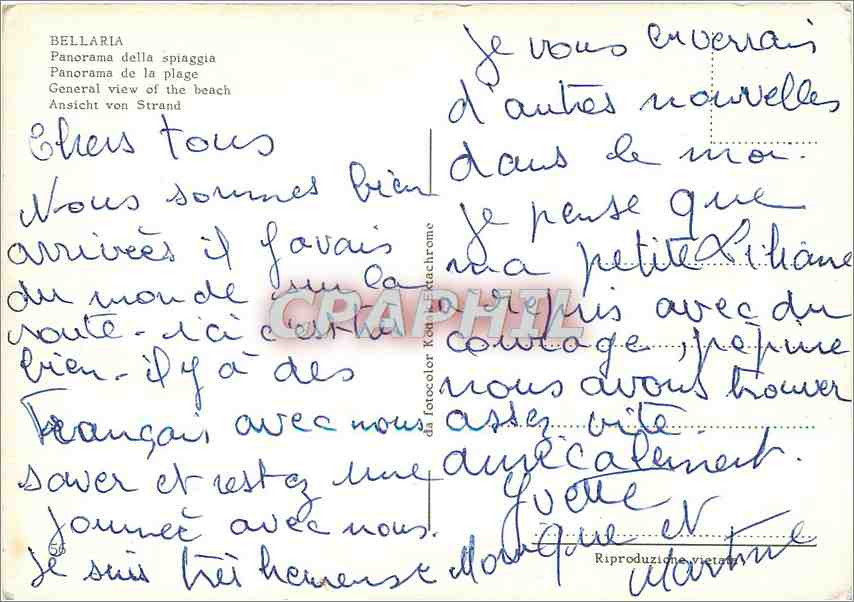 BELLARIA
Panorama della spiaggia
Panorama de la plage
General view of the beach
Ansicht von Strand
Chers tous
Nous sommes bien
arrivées il y avais
du monde sur la
route - ici c'est très
bien - il y à des
Français avec nous
saver et restez une
journeé avec nous.
je suis très heureuse
56
da fotocolor Kodak Ektachrome
je vous enverrais
d'autres nouvelles
dans le moi.
je pense que
ma petite Liliane
a repris avec du
courage, pépine
nous avons trouver
assez vite.
amécalement.
Yvette
Monique et
Martine
Riproduzione vietata
CPAPHIL